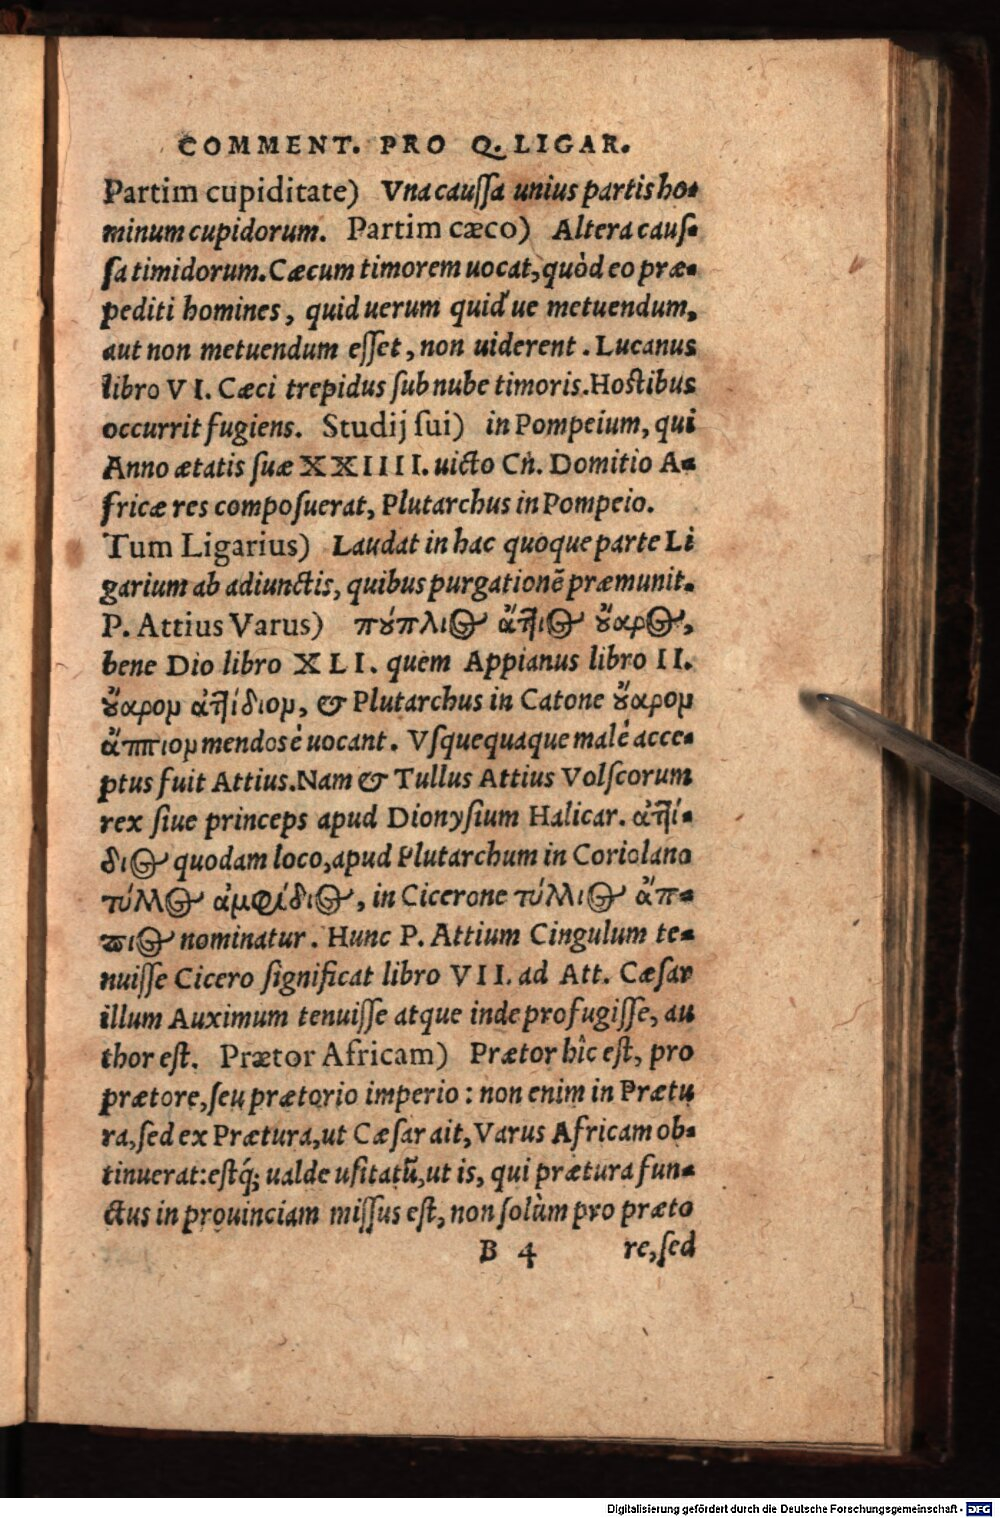 COMMENT. PRO Q. LIGAR.
Partim cupiditate) Vna cauſſa unius partis ho-
minum cupidorum. Partim cæco) Altera cauſ-
ſa timidorum. Cæcum timorem uocat, quòd eo præ-
pediti homines, quid uerum quid'ue metuendum,
aut non metuendum eſſet, non uiderent. Lucanus
libro VI. Cæci trepidus ſub nube timoris. Hoſtibus
occurrit fugiens. Studij ſui) in Pompeium, qui
Anno ætatis ſuæ XXIIII. uicto Cn. Domitio A-
fricæ res compoſuerat, Plutarchus in Pompeio.
Tum Ligarius) Laudat in hac quoque parte Li
garium ab adiunctis, quibus purgationē præmunit.
P. Attius Varus) πούπλιος ἄττιος οὔαρος,
bene Dio libro XLI. quem Appianus libro II.
οὔαρον ἀττίδιον, & Plutarchus in Catone οὔαρον
ἄππιον mendosè uocant. Vſquequaque malè acce-
ptus fuit Attius. Nam & Tullus Attius Volſcorum
rex ſiue princeps apud Dionyſium Halicar. ἀττί-
διος quodam loco, apud Plutarchum in Coriolano
τύλλος ἀμφίδιος, in Cicerone τύλλιος ἄπ-
πιος nominatur. Hunc P. Attium Cingulum te-
nuiſſe Cicero ſignificat libro VII. ad Att. Cæſar
illum Auximum tenuiſſe atque inde profugiſſe, au
thor eſt. Prætor Africam) Prætor hîc eſt, pro
prætore, ſeu prætorio imperio: non enim in Prætu
ra, ſed ex Prætura, ut Cæſar ait, Varus Africam ob-
tinuerat: eſtq́; ualde uſitatū, ut is, qui prætura fun-
ctus in prouinciam miſſus eſt, non ſolùm pro præto
B 4 re, ſed
Digitalisierung gefördert durch die Deutsche Forschungsgemeinschaft - DFG